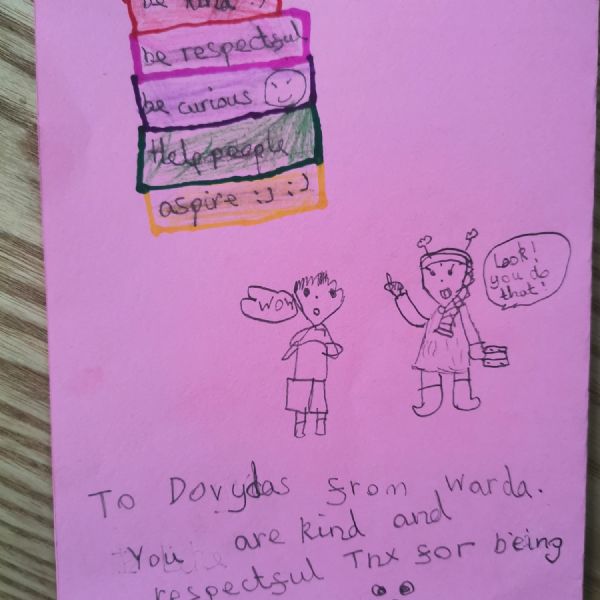 be kind :)
be respectful
be curious
Help people
aspire :) :)
wow
Look!
you do
that!
To Dovydas from Warda.
You are kind and
respectful Thx for being